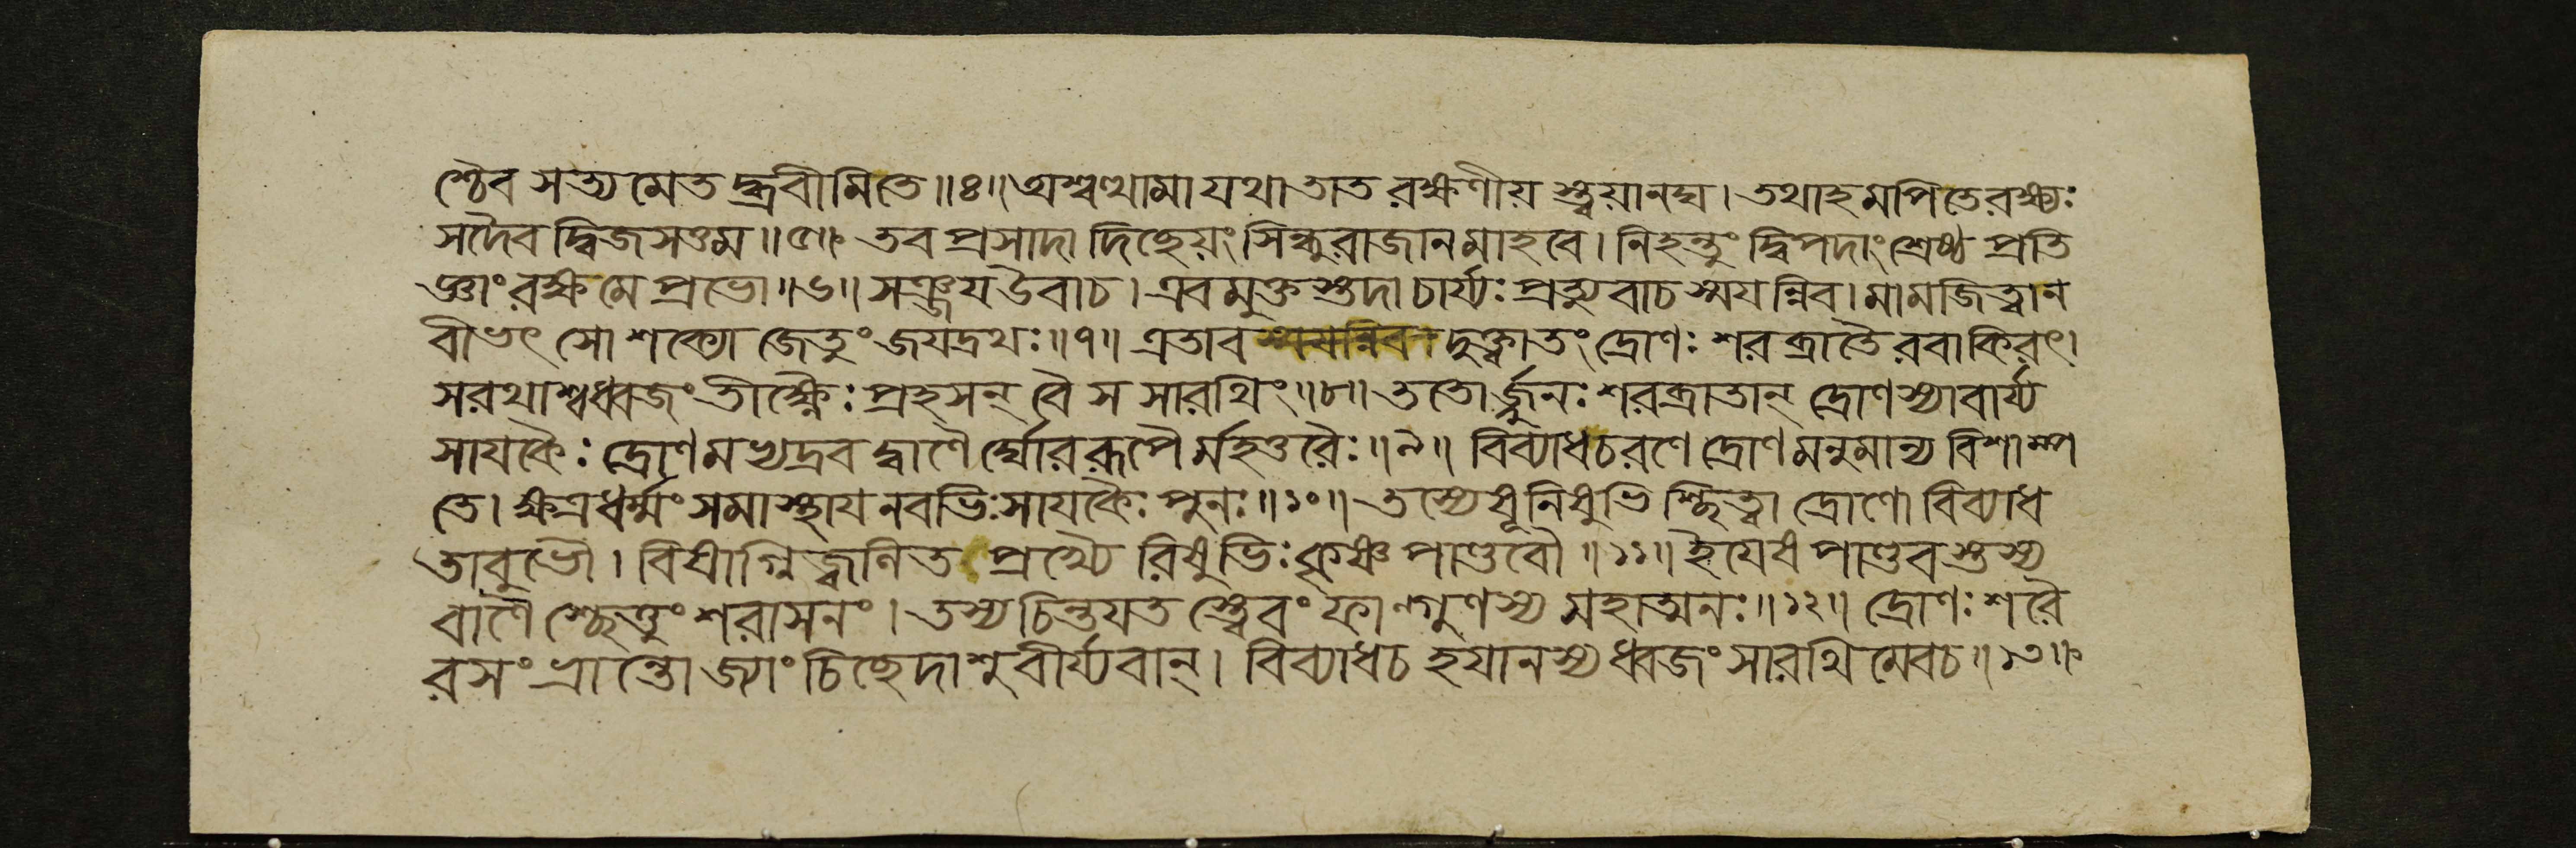 শ্চৈব সত্যমেতদ্ব্রবীমিতে॥৪॥অশ্বত্থামাযথাতাতরক্ষণীয়স্ত্বয়ানঘ।তথাহমপিতেরক্ষ্যঃ
সদৈবদ্বিজসত্তম॥৫॥তবপ্রসাদাদিচ্ছেয়ংসিন্ধুরাজানমাহবে।নিহন্তুংদ্বিপদাংশ্রেষ্ঠপ্রতি
জ্ঞাংরক্ষমেপ্রভো॥৬॥সঞ্জয়উবাচ।এবমুক্তস্তদাচার্য্যঃপ্রত্যুবাচস্ময়ন্নিব।মামজিত্বান
বীভৎসোশক্যোজেতুংজয়দ্রথঃ॥৭॥এতাবদুক্ত্বাতংদ্রোণঃশরব্রাতৈরবাকিরৎ।
সরথাশ্বধ্বজংতীক্ষ্ণৈঃপ্রহসন্ বৈসসারথিং॥৮॥ততোর্জ্জুনঃশরব্রাতান্ দ্রোণস্যাবার্য্য
সায়কৈঃদ্রোণমভ্যদ্রবদ্বাণৈর্ঘোররূপৈর্মহত্তরৈঃ॥৯॥বিব্যাধচরণেদ্রোণমনুমান্যবিশাম্প
তে।ক্ষত্রধর্ম্মংসমাস্থায়নবভিঃসায়কৈঃপুনঃ॥১০॥তস্যেষূনিষুভিশ্ছিত্বাদ্রোণোবিব্যাধ
তাবুভৌ।বিষাগ্নিজ্বলিতপ্রখ্যৈরিষুভিঃকৃষ্ণপাণ্ডবৌ॥১১॥ইয়েষপাণ্ডবস্তস্য
বাণৈশ্ছেত্তুংশরাসনং।তস্যচিন্তয়তস্ত্বেবংফাল্গুণস্যমহাত্মনঃ॥১২॥দ্রোণঃশরৈ
রসংভ্রান্তোজ্যাংচিচ্ছেদাশুবীর্য্যবান্।বিব্যাধচহয়ানস্যধ্বজংসারথিমেবচ॥১৩॥